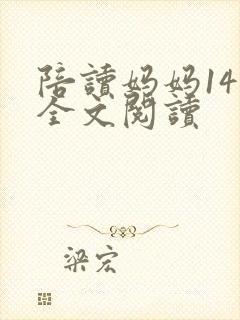 陪讀妈妈14
全文閱讀
梁宏